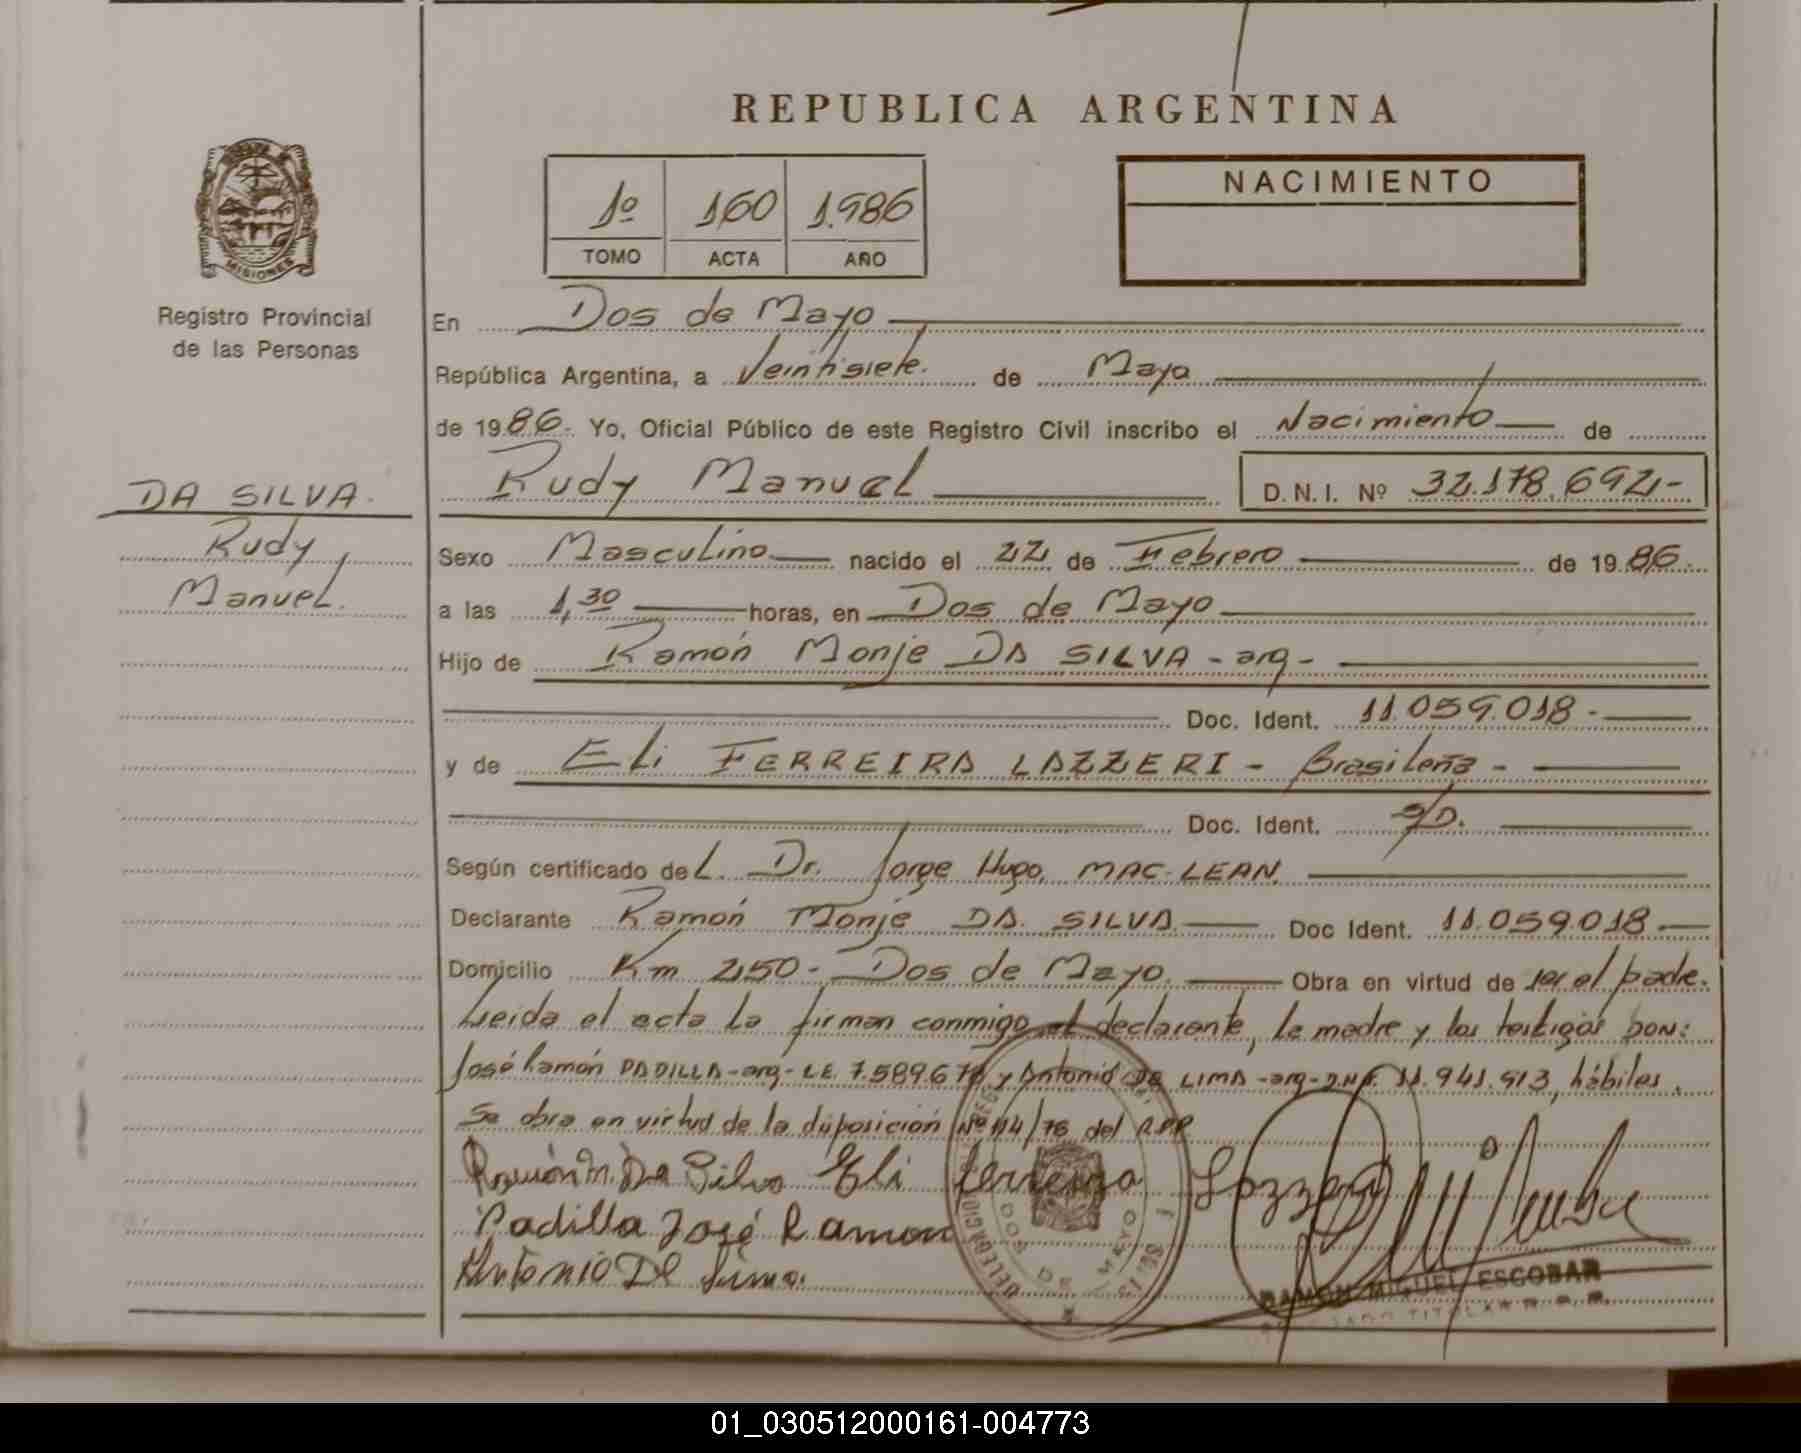 REPUBLICA ARGENTINA
1º 160 1.986
TOMO ACTA AÑO
NACIMIENTO
MISIONES
Registro Provincial
de las Personas
DA SILVA.
Rudy
Manuel.
En Dos de Mayo
República Argentina, a Veintisiete. de Mayo
de 1986.- Yo, Oficial Público de este Registro Civil inscribo el Nacimiento de
Rudy Manuel D.N.I. Nº 32.178.692.-
Sexo Masculino nacido el 22 de Febrero de 1986.
a las 1,30 horas, en Dos de Mayo
Hijo de Ramón Monje DA SILVA - arg -
Doc. Ident. 11.059.018 -
y de Eli FERREIRA LAZZERI - Brasileña -
Doc. Ident. S/D.
Según certificado del. Dr. Jorge Hugo. MAC-LEAN.
Declarante Ramón Monje DA. SILVA. Doc Ident. 11.059.018.
Domicilio Km 250 - Dos de Mayo. Obra en virtud de ser el padre.
Leida el acta la firman conmigo el declarante, la madre y los testigos DON:
José Ramón PADILLA - arg - LE. 7.589.678 y Antonio DE LIMA - arg - D.N.I. 11.941.913, hábiles.
Se obra en virtud de la disposición Nº 114/78 del R.P.P
Ramón M. Da Silva Eli Ferreira Lazzeri
Padilla José Ramon
Antonio De Lima.
DOS DE MAYO
RAMON MIGUEL ESCOBAR
01_030512000161-004773